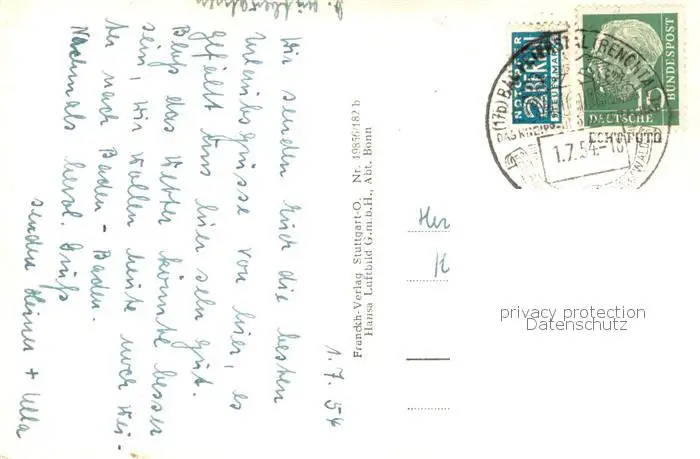 1.7.54
Wir senden Euch die besten
Urlaubsgrüsse von hier, es
gefällt uns hier sehr gut.
Bloß das Wetter könnte besser
sein, wir wollen heute noch wei-
ter nach Baden-Baden.
Nochmals herzl. Grüß
senden Heiner + Ulla
Franckh-Verlag Stuttgart-O. Nr. 19856/182 b
Hansa Luftbild G.m.b.H., Abt. Bonn
NOTOPFER
2 BERLIN
STEUERMARKE
10
DEUTSCHE
BUNDESPOST
(17b) BAD (RENCHTAL)
1.7.54.-10
ECHT FOTO
Her
privacy protection
Datenschutz